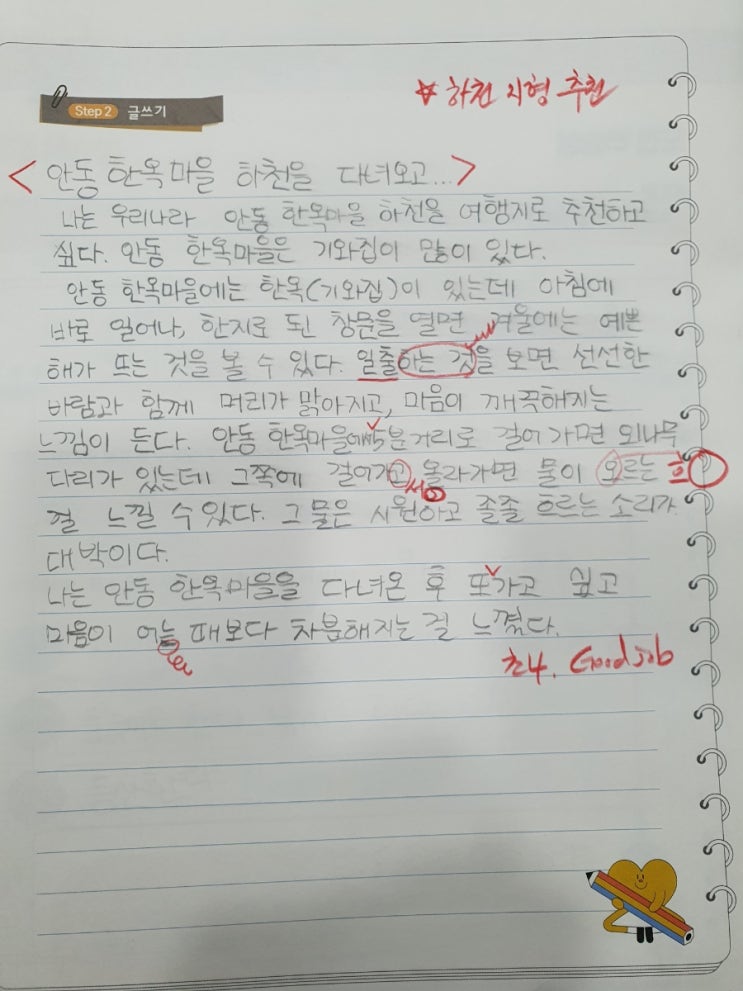 Step 2 글쓰기
☆ 하천 지형 추천
< 안동 한옥마을 하천을 다녀오고... >
나는 우리나라 안동 한옥마을 하천을 여행지로 추천하고
싶다. 안동 한옥마을은 기와집이 많이 있다.
안동 한옥마을에는 한옥(기와집)이 있는데 아침에
바로 일어나, 한지로 된 창문을 열면 겨울에는 예쁜
해가 뜨는 것을 볼 수 있다. 일출하는 것을 보면 선선한
바람과 함께 머리가 맑아지고, 마음이 깨끅해지는
느낌이 든다. 안동 한옥마을에서 5분거리로 걸어 가면 외나무
다리가 있는데 그쪽에 걸어가고 올라가면 물이 오르는 흐
서
걸 느낄 수 있다. 그 물은 시원하고 졸졸 흐르는 소리가
대박이다.
나는 안동 한옥마을을 다녀온 후 또가고 싶고
마음이 어는 때보다 차분해지는 걸 느꼈다.
느
초4. Good job